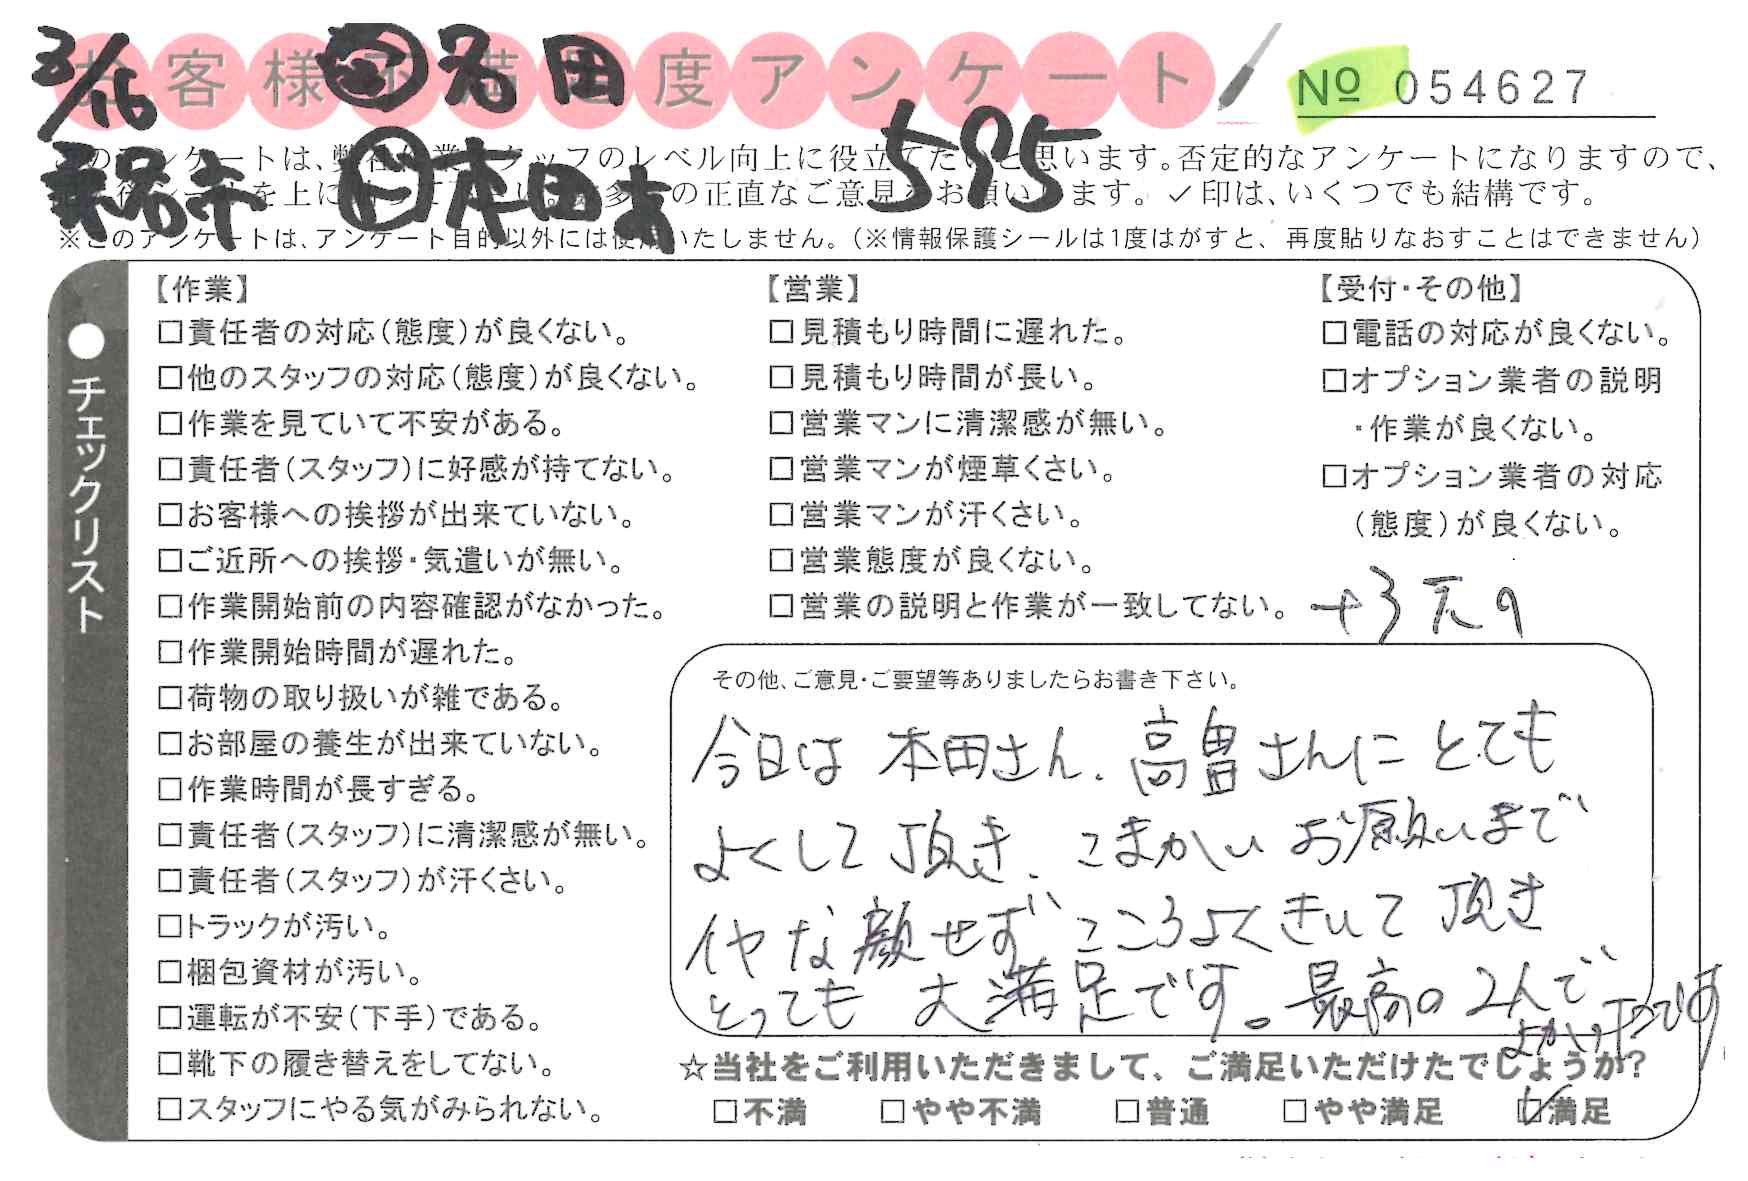 お客様不満足度アンケート
3/16
名田
本田
595
No 054627
このアンケートは、弊社作業スタッフのレベル向上に役立てたいと思います。否定的なアンケートになりますので、
を上に の正直なご意見をお願いします。✓印は、いくつでも結構です。
※このアンケートは、アンケート目的以外には使用いたしません。(※情報保護シールは1度はがすと、再度貼りなおすことはできません)
●チェックリスト
【作業】
□責任者の対応(態度)が良くない。
□他のスタッフの対応(態度)が良くない。
□作業を見ていて不安がある。
□責任者(スタッフ)に好感が持てない。
□お客様への挨拶が出来ていない。
□ご近所への挨拶・気遣いが無い。
□作業開始前の内容確認がなかった。
□作業開始時間が遅れた。
□荷物の取り扱いが雑である。
□お部屋の養生が出来ていない。
□作業時間が長すぎる。
□責任者(スタッフ)に清潔感が無い。
□責任者(スタッフ)が汗くさい。
□トラックが汚い。
□梱包資材が汚い。
□運転が不安(下手)である。
□靴下の履き替えをしてない。
□スタッフにやる気がみられない。
【営業】
□見積もり時間に遅れた。
□見積もり時間が長い。
□営業マンに清潔感が無い。
□営業マンが煙草くさい。
□営業マンが汗くさい。
□営業態度が良くない。
□営業の説明と作業が一致してない。
【受付・その他】
□電話の対応が良くない。
□オプション業者の説明
・作業が良くない。
□オプション業者の対応
(態度)が良くない。
その他、ご意見・ご要望等ありましたらお書き下さい。
今日は 本田さん、高畠さんに とても
よくして頂き、こまかい お願いまで
イヤな顔せず こころよく きいて 頂き
とっても 大満足です。最高の 2人で、
よかったです
☆当社をご利用いただきまして、ご満足いただけたでしょうか?
□不満 □やや不満 □普通 □やや満足 ☑満足